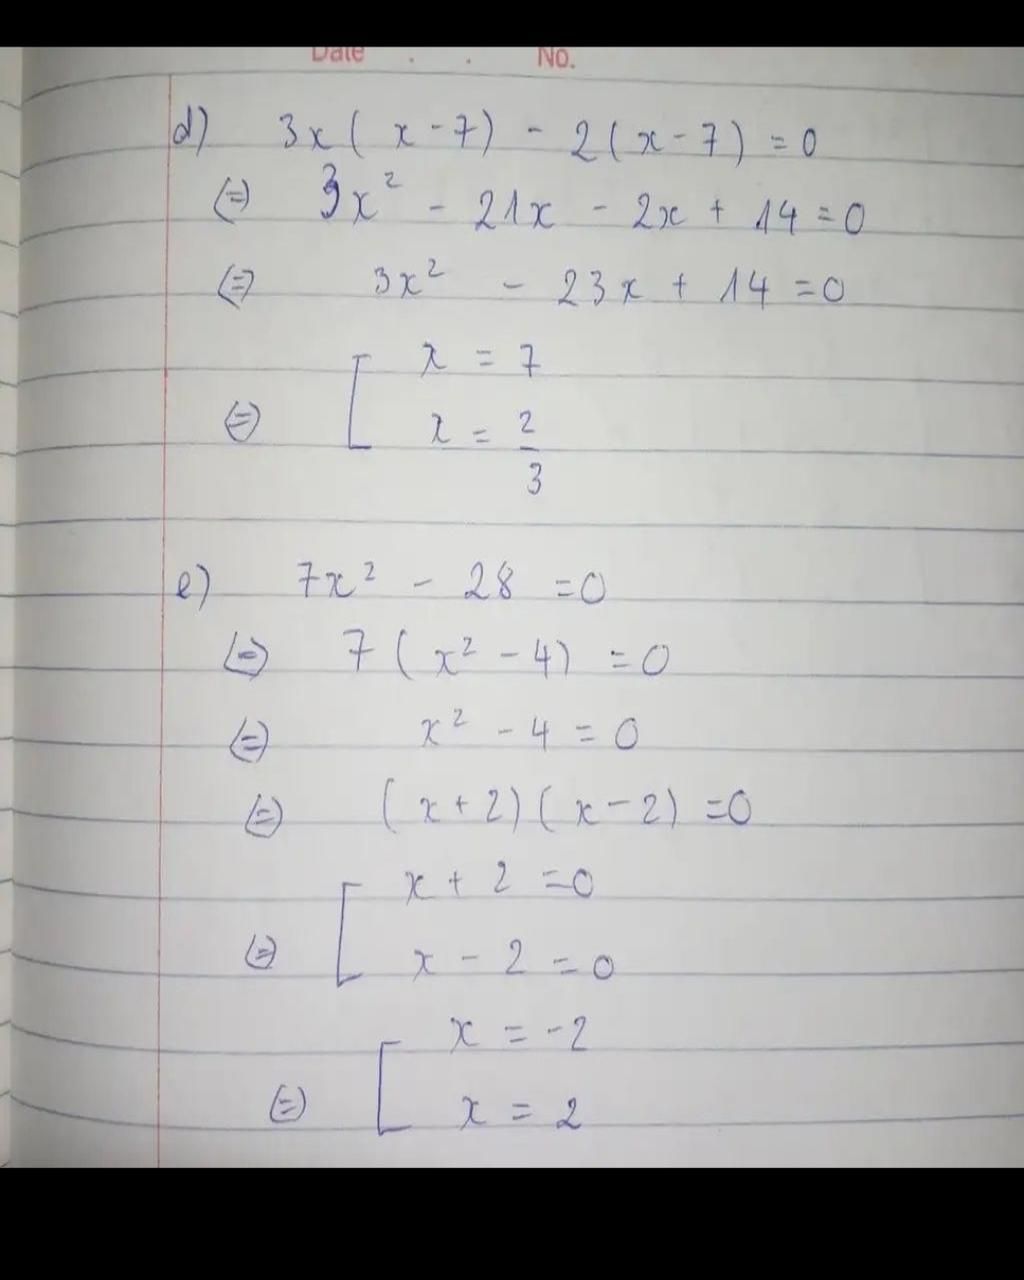 Date . . No.
d) 3x(x-7) - 2(x-7) = 0
(=) 3x² - 21x - 2x + 14 = 0
(=) 3x² - 23x + 14 = 0
x = 7
(=) [ x = 2/3
e) 7x² - 28 = 0
(=) 7(x² - 4) = 0
(=) x² - 4 = 0
(=) (x+2)(x-2) = 0
x + 2 = 0
(=) [ x - 2 = 0
x = -2
(=) [ x = 2